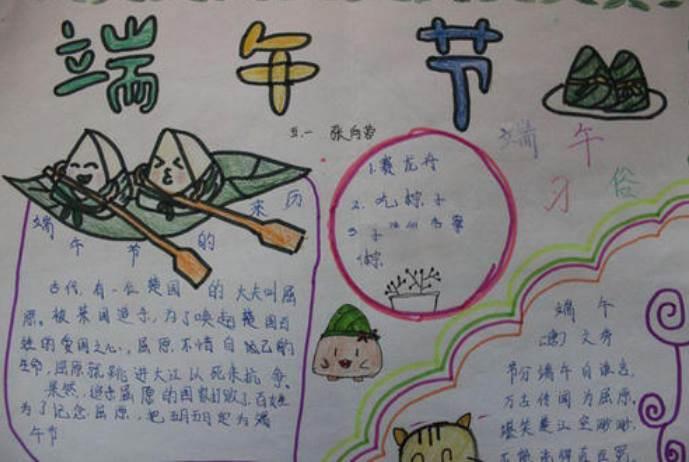 端午节
五.一 张向荣
端午节的来历
古代,有一位楚国的大夫叫屈
原。被某国追杀,为了唤起楚国百
姓的爱国之心,屈原不惜自己的
生命,屈原就跳进大江以死来抗
果然,屈原的国家打败了百姓
为了记念屈原,把五月五日定为端
午节
1.赛龙舟
2.吃粽子
3.
粽.
端午
习俗
端午
文秀
节分端午自谁言,
万古传闻为屈原。
堪笑楚江空渺渺,